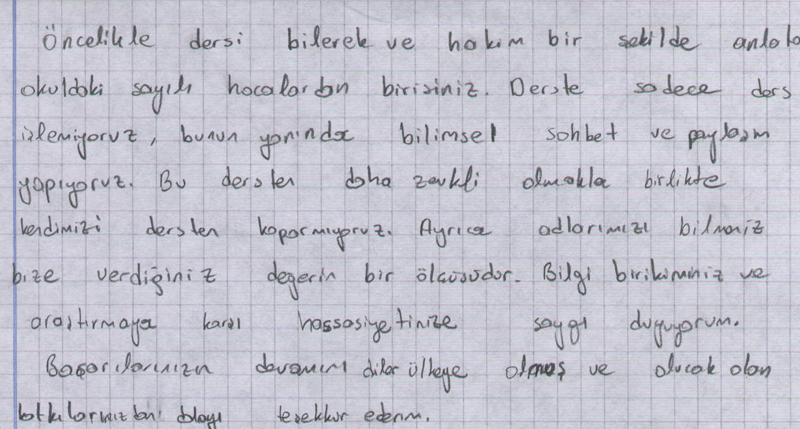 Öncelikle dersi bilerek ve hakim bir sekilde anlata
okuldaki sayılı hocalardan birisiniz. Derste sadece ders
izlemiyoruz, bunun yanında bilimsel sohbet ve paylasım
yapıyoruz. Bu dersten daha zevkli olmakla birlikte
kendimizi dersten koparmıyoruz. Ayrıca adlarımızı bilmeniz
bize verdiğiniz değerin bir ölçüsüdür. Bilgi birikiminiz ve
araştırmaya karsı hassasiyetinize saygı duyuyorum.
Başarılarınızın devamını diler ülkeye olmuş ve olucak olan
katkılarınızdan dolayı tesekkur ederim.